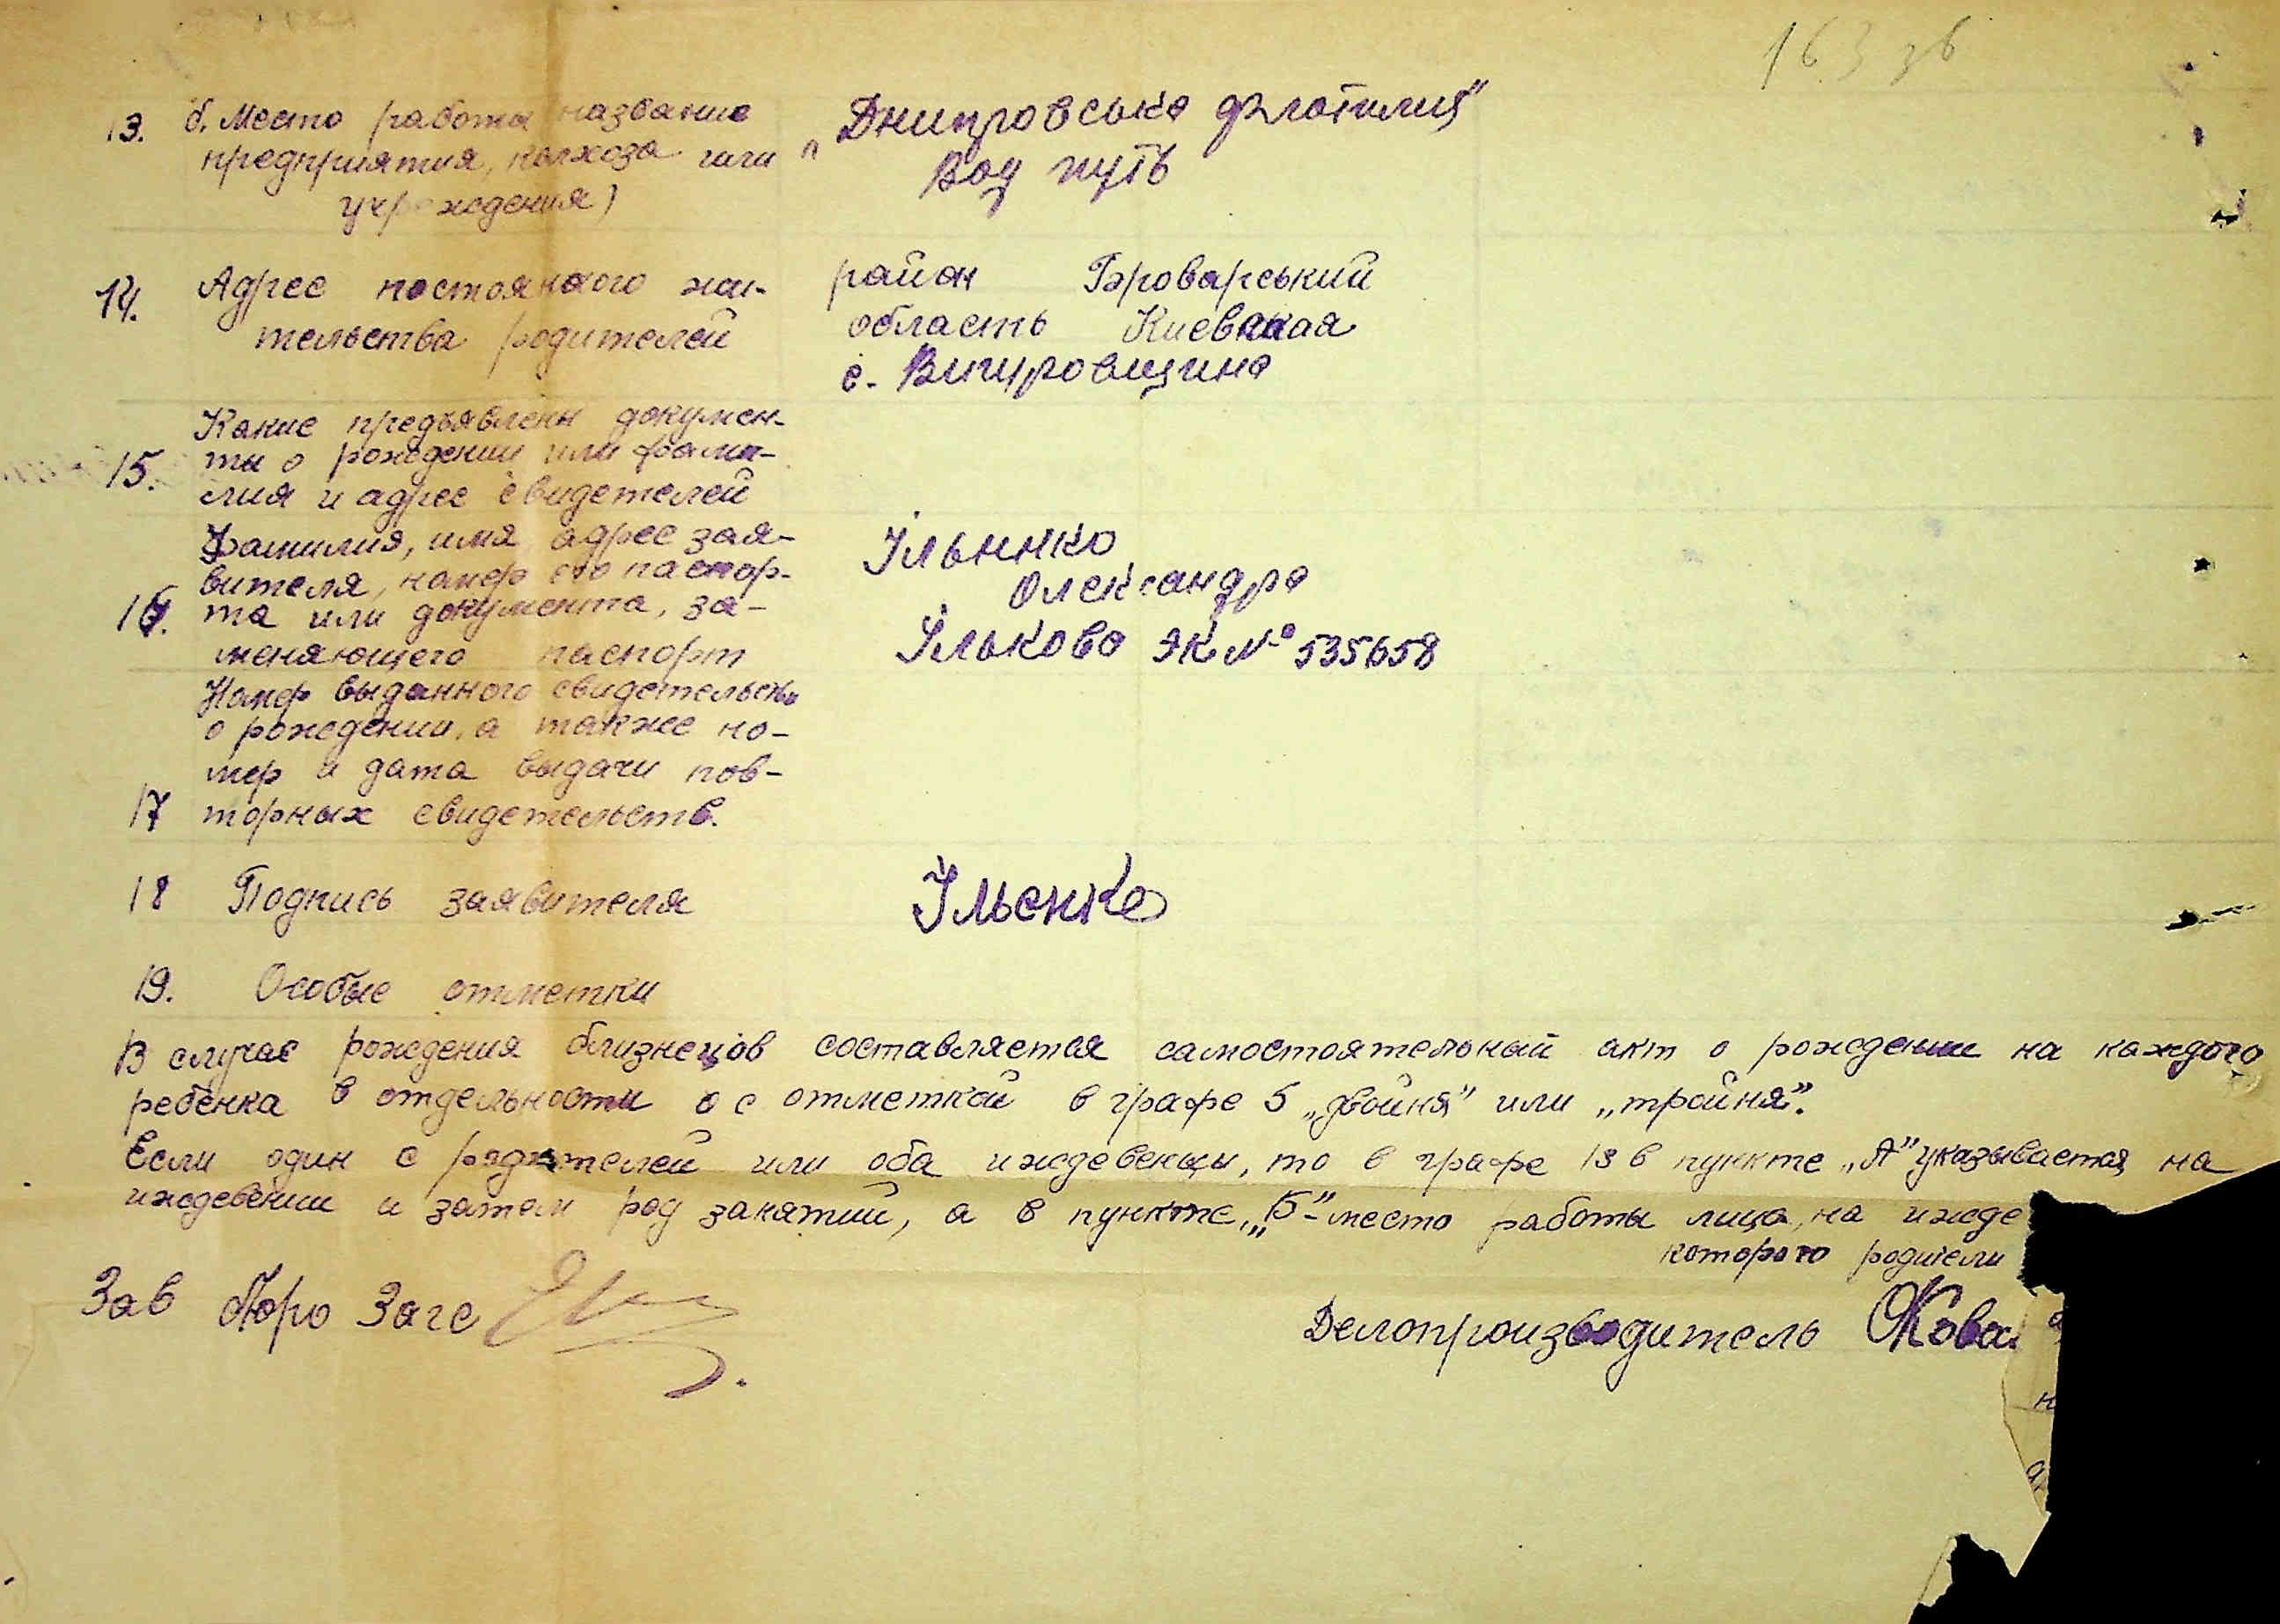 163 зв
13. б. Место работы название
предприятия, колхоза или
учреждения)
"Днипровська флотилия"
Вод путь
14. Адрес постоянного жи-
тельства родителей
район Броварський
область Киевская
с. Вигуровщина
Какие предъявлены докумен-
15. ты о рождении или фами-
лия и адрес свидетелей
Фамилия, имя, адрес зая-
вителя, номер его паспор-
16. та или документа, за-
меняющего паспорт
Ільінко
Олександра
Ількова ЯК № 535658
Номер выданного свидетельства
о рождении, а также но-
мер и дата выдачи пов-
17 торных свидетельств.
18 Подпись заявителя
Ільенко
19. Особые отметки
В случае рождения близнецов составляется самостоятельный акт о рождении на каждого
ребенка в отдельности о с отметкой в графе 5 „двойня" или „тройня".
Если один с родителей или оба иждевенцы, то в графе 13 в пункте „А" указывается на
иждевении и затем род занятий, а в пункте „Б"-место работы лица, на ижде
которого родители
Зав бюро Загс
Делопроизводитель Кова